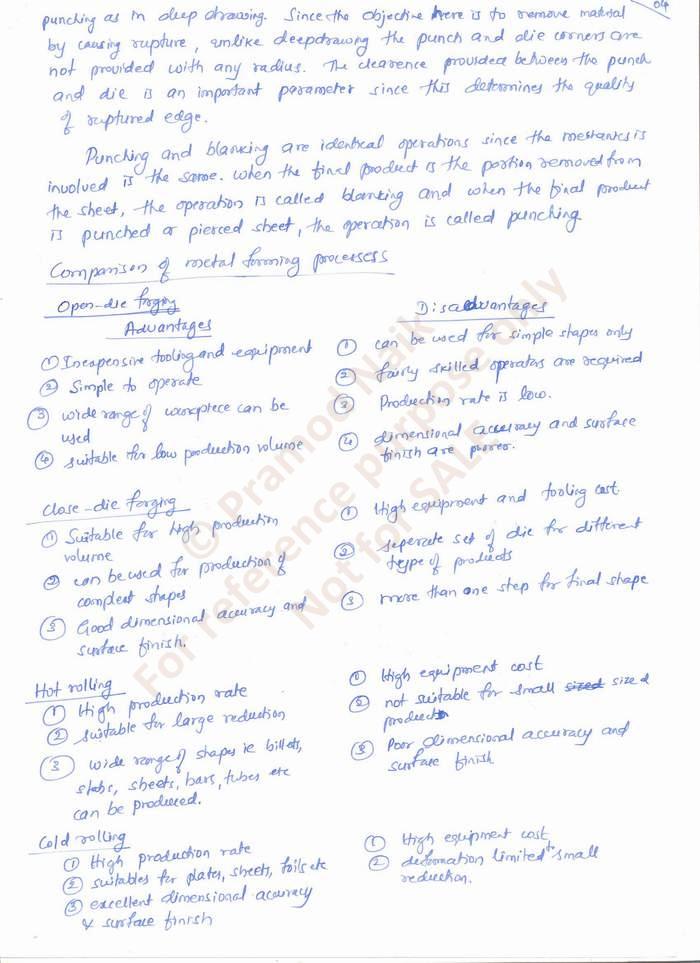 04
punching as in deep drawing. Since the objective here is to remove material
by causing rupture, unlike deepdrawing the punch and die corners are
not provided with any radius. The clearence provided between the punch
and die is an important parameter since this determines the quality
of ruptured edge.
Punching and blanking are identical operations since the mechanics is
involved is the same. when the final product is the portion removed from
the sheet, the operation is called blanking and when the final product
is punched or pierced sheet, the operation is called punching
Comparison of metal forming processess
Open-die forging
Advantages
① Inexpensive tooling and equipment
② Simple to operate
③ wide range of workpiece can be
used
④ suitable for low production volume
Disadvantages
① can be used for simple shapes only
② fairly skilled operators are required
③ Production rate is low.
④ dimensional accuracy and surface
finish are poorer.
Close-die forging
① Suitable for high production
volume
② can be used for production of
complex shapes
③ Good dimensional accuracy and
surface finish.
① High equipment and tooling cost.
② seperate set of die for different
type of products
③ more than one step for final shape
Hot rolling
① High production rate
② suitable for large reduction
③ wide range of shapes ie billets,
slabs, sheets, bars, tubes etc
can be produced.
① High equipment cost
② not suitable for small sized sized
products
③ Poor dimensional accuracy and
surface finish
Cold rolling
① High production rate
② suitables for plates, sheets, foils etc
③ excellent dimensional accuracy
& surface finish
① High equipment cost
② deformation limited to small
reduction.
© Pramod Naik
For reference purpose only
Not for SALE